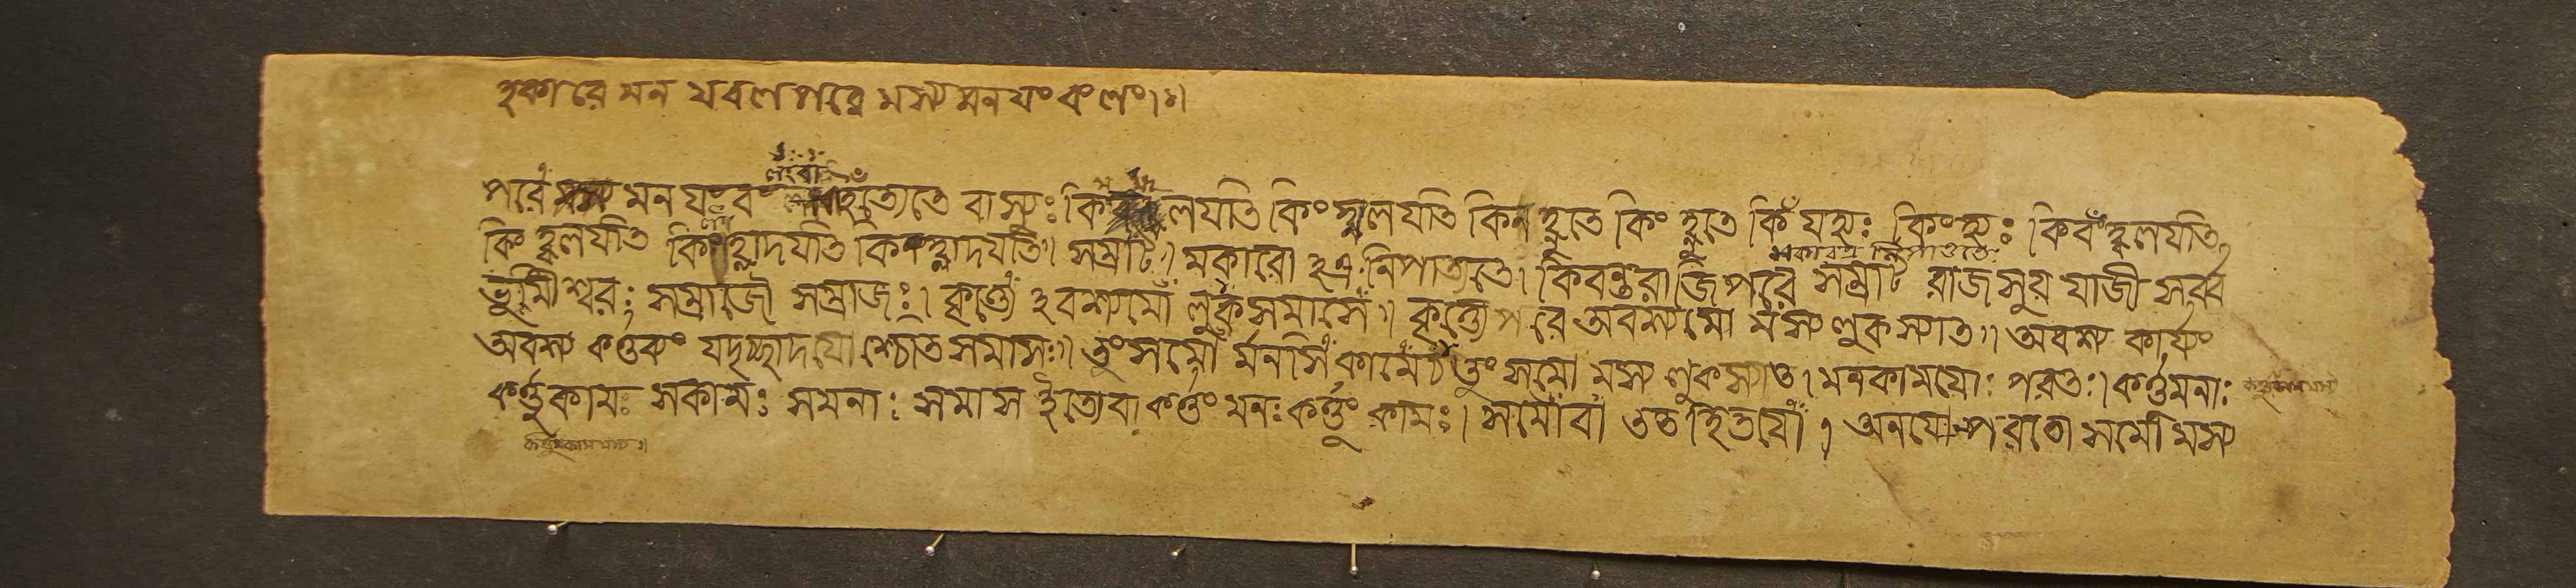 হকারে মন যবলপরে মস্য মনযংবংলং।ঃ।
পরে মস্য মন যংবং ইত্যেতে বাস্যুঃ কি হ্মলযতি কিংহ্মলযতি কিনহ্নুতে কিং হ্নুতে কিঁযহ্যঃ কিংহ্যঃ কিবঁহ্বলযতি
কিং হ্বলযতি কিংহ্লাদযতি কিলঁহ্লাদযতি॥ সম্রাট্॥ মকারো হত্র নিপাত্যতে। কিবন্তরাজিপরে সম্রাট রাজসুয় যাজী সর্ব্ব
ভুমীশ্বরঃ সম্রাজৌ সম্রাজঃ। কৃত্যে হবশ্যমো লুক্সমাসে॥ কৃত্যেপরে অবশ্যমো মস্য লুকস্যাত॥ অবশ্য কার্য্যং
অবশ্য কর্ত্তব্যং যদৃচ্ছাদযো শ্চেতি সমাসঃ॥ তুংসমো র্মনসি কামে॥ তুং সমো মস্য লুকস্যাত। মনকামযোঃ পরতঃ। কর্ত্তুমনাঃ
কর্ত্তুকামঃ সকামঃ সমনাঃ সমাস ইত্যেবা কর্ত্তুং মনঃ কর্ত্তুং কামঃ। সমোবা ততহিতযো। অনযোঃপরতো সমো মস্য